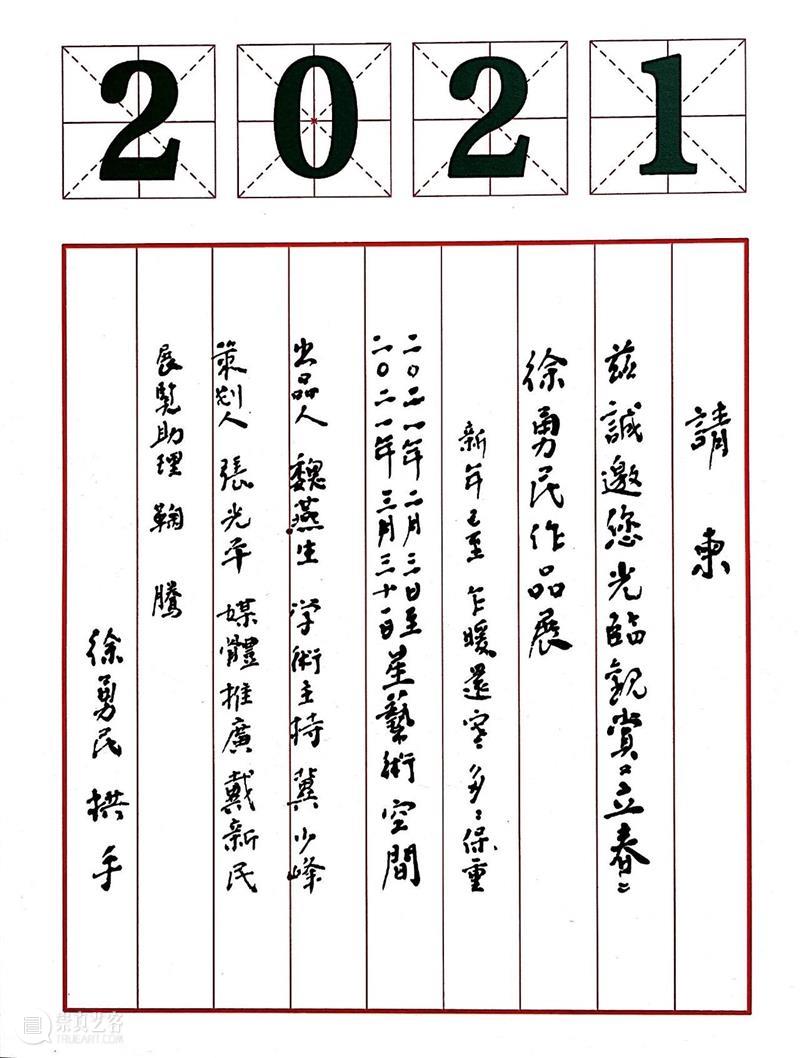 2021
請柬
兹誠邀您光臨觀賞〝立春〞
徐勇民作品展
新年已至 乍暖還寒 多多保重
二〇二一年二月三日至
二〇二一年三月三十一日
星藝術空間
出品人 魏燕生 学術主持 冀少峰
策划人 張光平 媒體推廣 戴新民
展覧助理 鞠騰
徐勇民 拱手
崇真艺客
TRUEART.COM